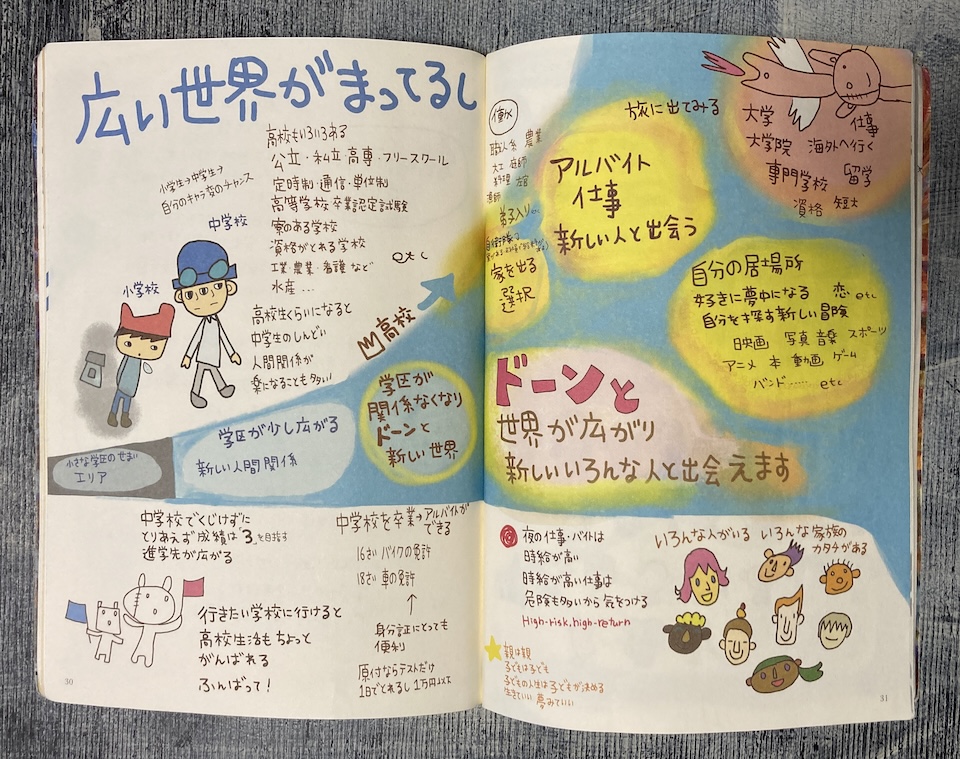 広い世界がまってるし
高校もいろいろある
公立・私立・高専・フリースクール
定時制・通信・単位制
高等学校卒業認定試験
寮のある学校
資格がとれる学校
工業・農業・看護 など etc
水産…
小学生→中学生→
自分のキャラ変のチャンス
中学校
小学校
高校生くらいになると
中学生のしんどい
人間関係が
楽になることも多い
高校
小さな学区のせまい
エリア
学区が少し広がる
新しい人間関係
学区が
関係なくなり
ドーンと
新しい世界
中学校でくじけずに
とりあえず成績は「3」を目指す
進学先が広がる
行きたい学校に行けると
高校生活もちょっと
がんばれる
ふんばって!
中学校を卒業→アルバイトが
できる
16さい バイクの免許
18さい 車の免許
↑
身分証にとっても
便利
原付ならテストだけ
1日でとれるし1万円以下
30
働く
職人系 農業
大工 庭師
料理 左官
弟子入り
家を出る
選択
旅に出てみる
アルバイト
仕事
新しい人と出会う
大学 仕事
大学院 海外へ行く
専門学校 留学
資格 短大
自分の居場所
好きに夢中になる 恋 etc
自分を探す新しい冒険
映画 写真 音楽 スポーツ
アニメ 本 動画 ゲーム
バンド…… etc
ドーンと
世界が広がり
新しいいろんな人と出会えます
夜の仕事・バイトは
時給が高い
時給が高い仕事は
危険も多いから気をつける
High-risk, high-return
いろんな人がいる いろんな家族の
カタチがある
親は親
子どもは子ども
子どもの人生は子どもが決める
生きていい 夢みていい
31